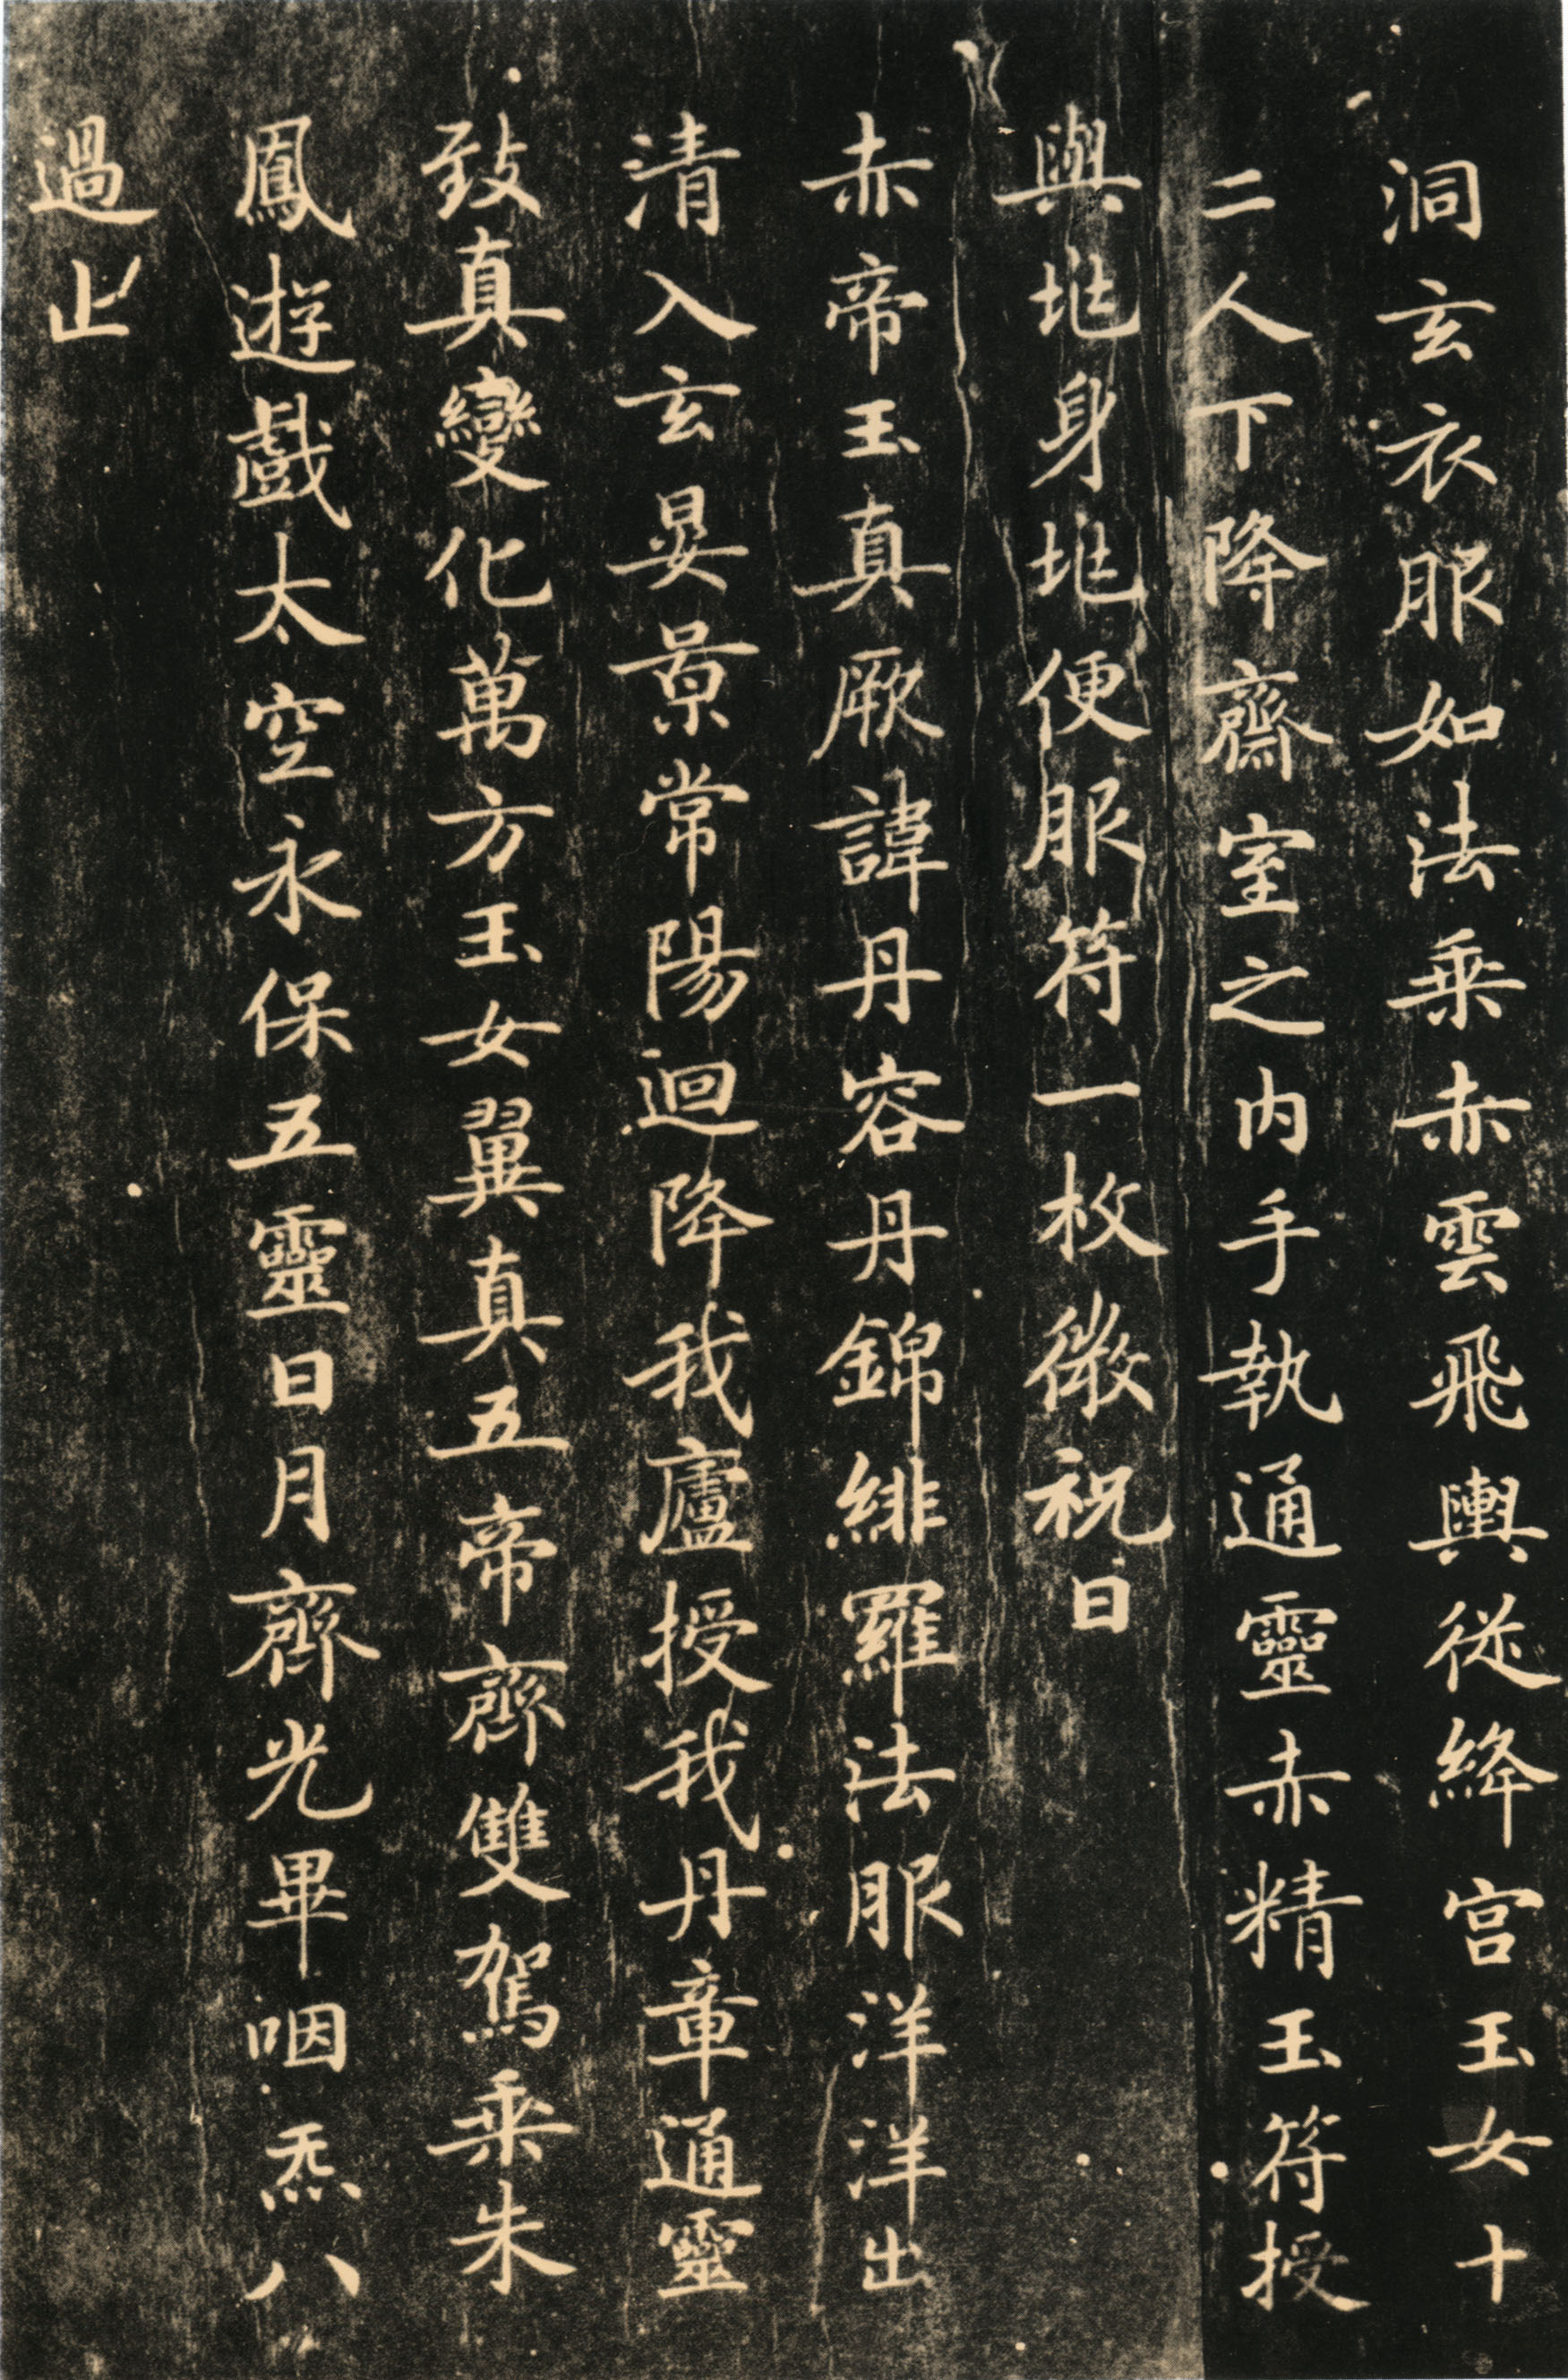 洞玄衣服如法乘赤雲飛輿從絳宮玉女十
二人下降齋室之內手執通靈赤精玉符授
與地身地便服符一枚微祝曰
赤帝玉真厥諱丹容丹錦緋羅法服洋洋出
清入玄晏景常陽迴降我廬授我丹章通靈
致真變化萬方玉女翼真五帝齊雙駕乘朱
鳳遊戲太空永保五靈日月齊光畢咽炁八
過止